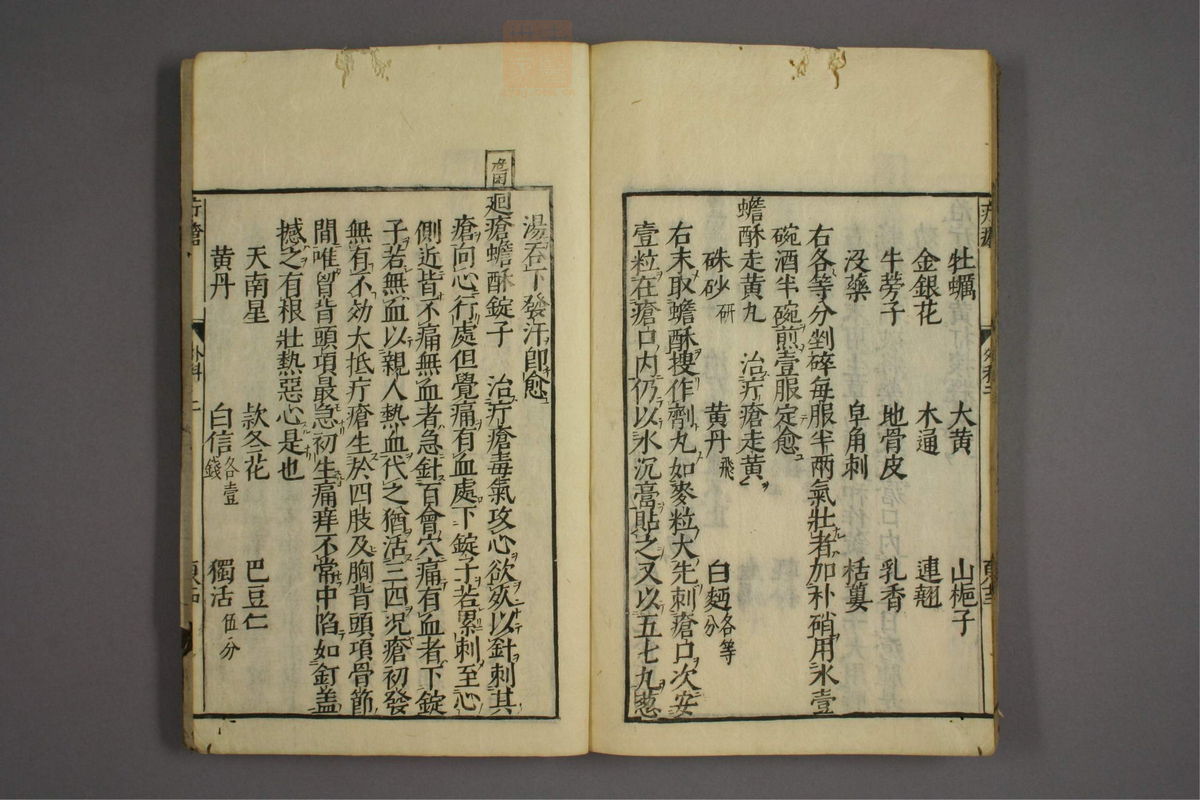 牡蠣 大黄 山梔子
金銀花 木通 連翹
牛蒡子 地骨皮 乳香
没藥 皁角刺 栝蔞
右各等分剉碎毎服半兩氣壯者加朴硝用水壹
碗酒半碗煎壹服定愈
蟾酥走黄丸 治疔瘡走黄
硃砂研 黄丹飛 白麵各等分
右末取蟾酥搜作劑丸如麥粒大先刺瘡口次安
壹粒在瘡口内仍以水沉膏貼之又以五七九葱
湯吞下發汗即愈
廻瘡蟾酥錠子 治疔瘡毒氣攻心欲死以針刺其
瘡向心行處但覺痛有血處下錠子若累刺至心
側近皆不痛無血者急針百會穴痛有血者下錠
子若無血以親人熱血代之猶活三四况瘡初發
無有不効大抵疔瘡生於四肢及胸背頭項骨節
間唯胷背頭項最急初生痛痒不常中陷如釘盖
撼之有根壯熱惡心是也
天南星 款冬花 巴豆仁
黄丹 白信各壹錢 獨活伍分
疔瘡
外科 二